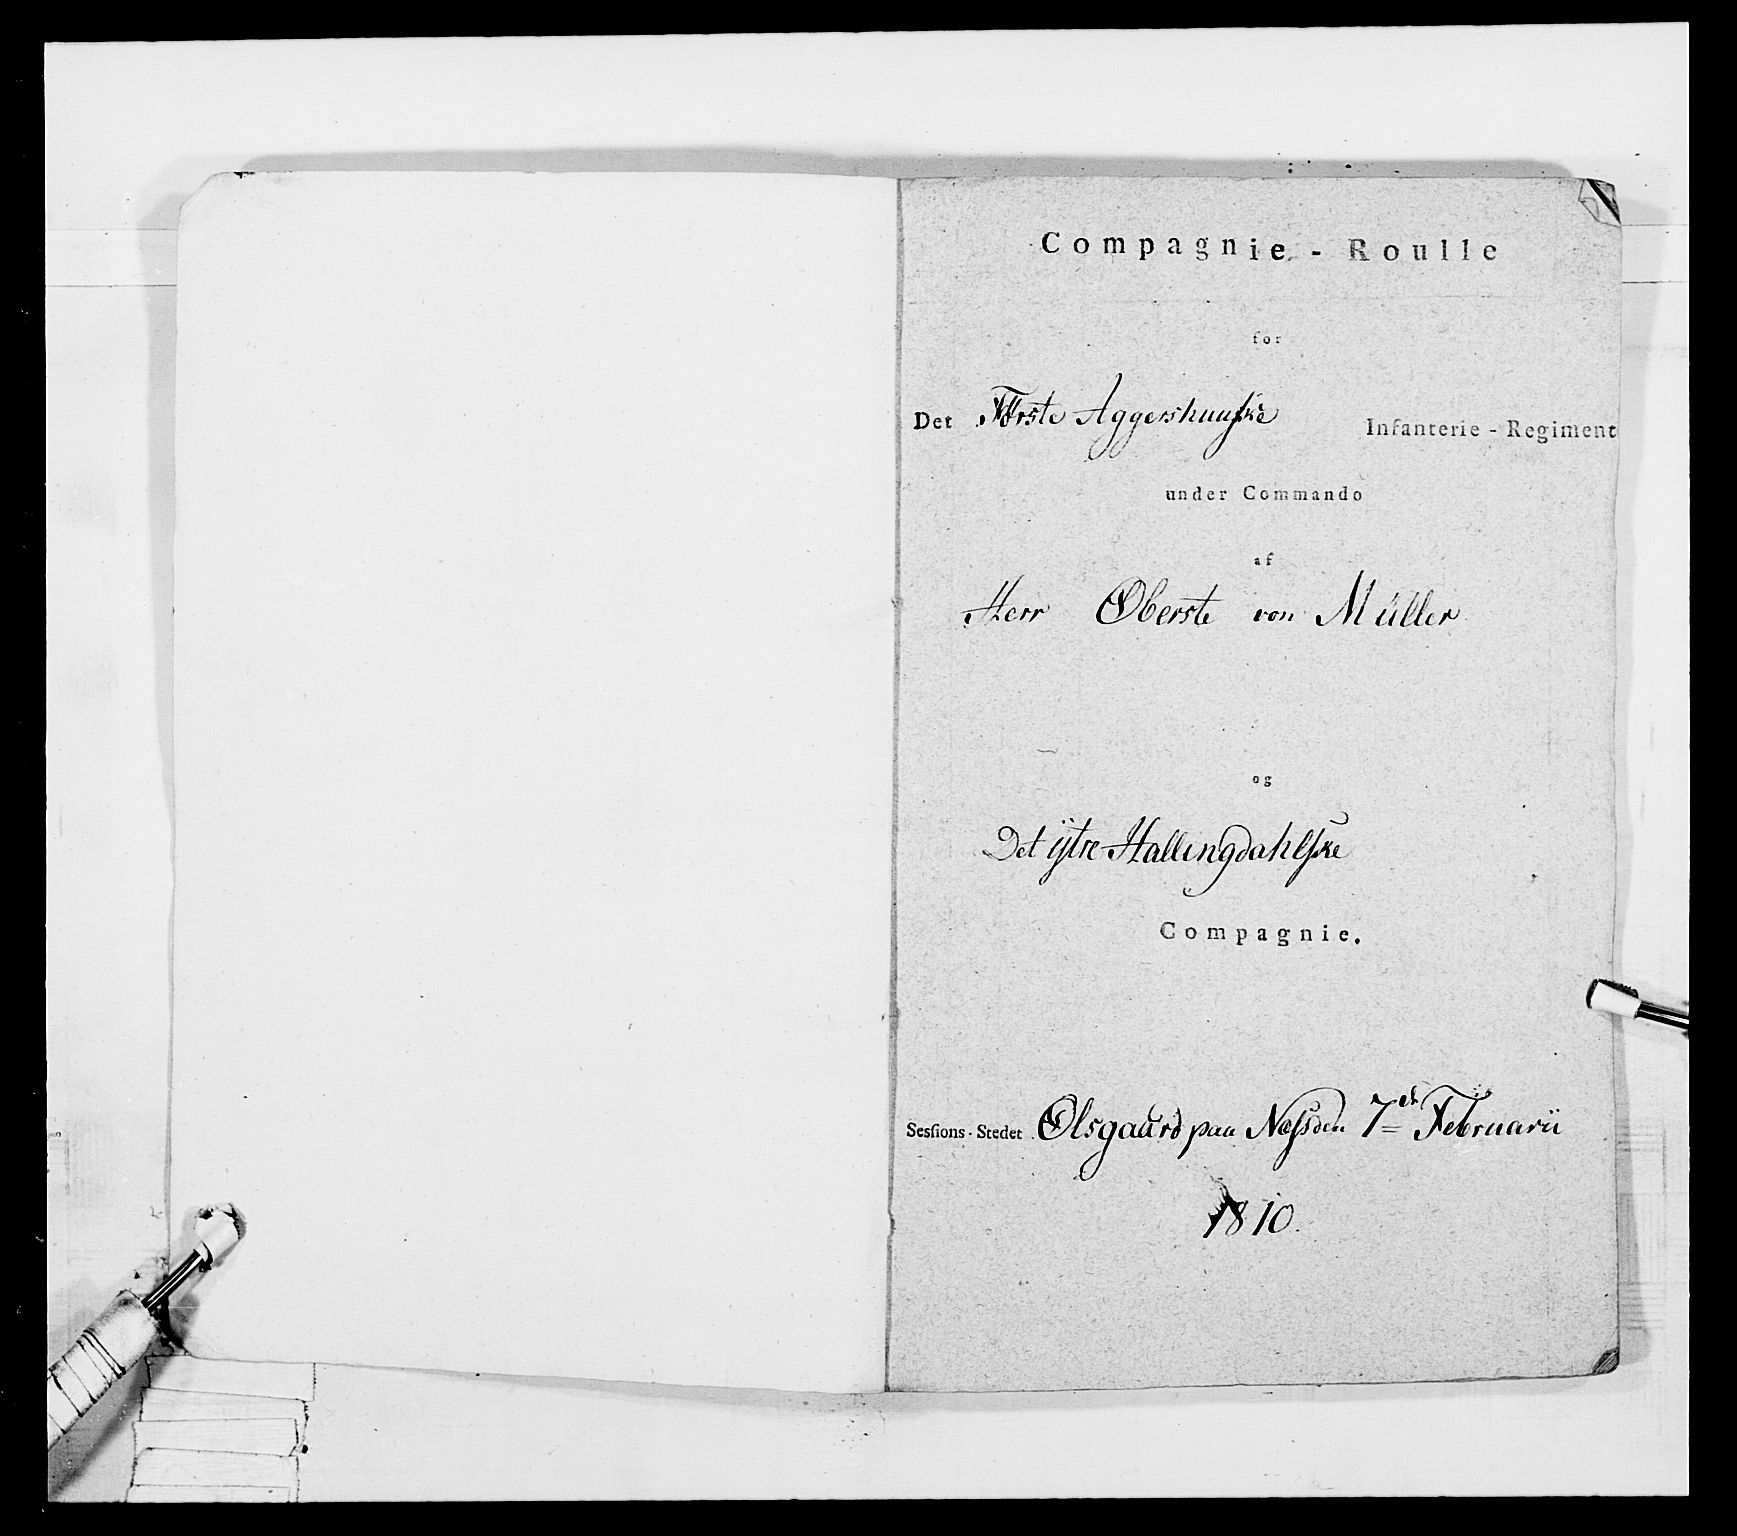 Compagnie - Roulle
for
Det Første Aggershuuske Infanterie - Regiment
under Commando
af
Herr Oberste von Müller
og
Det ÿtre Hallingdahlske
Compagnie.
Sessions-Stedet Olsgaard paa Næss den 7de Februarii
1810.